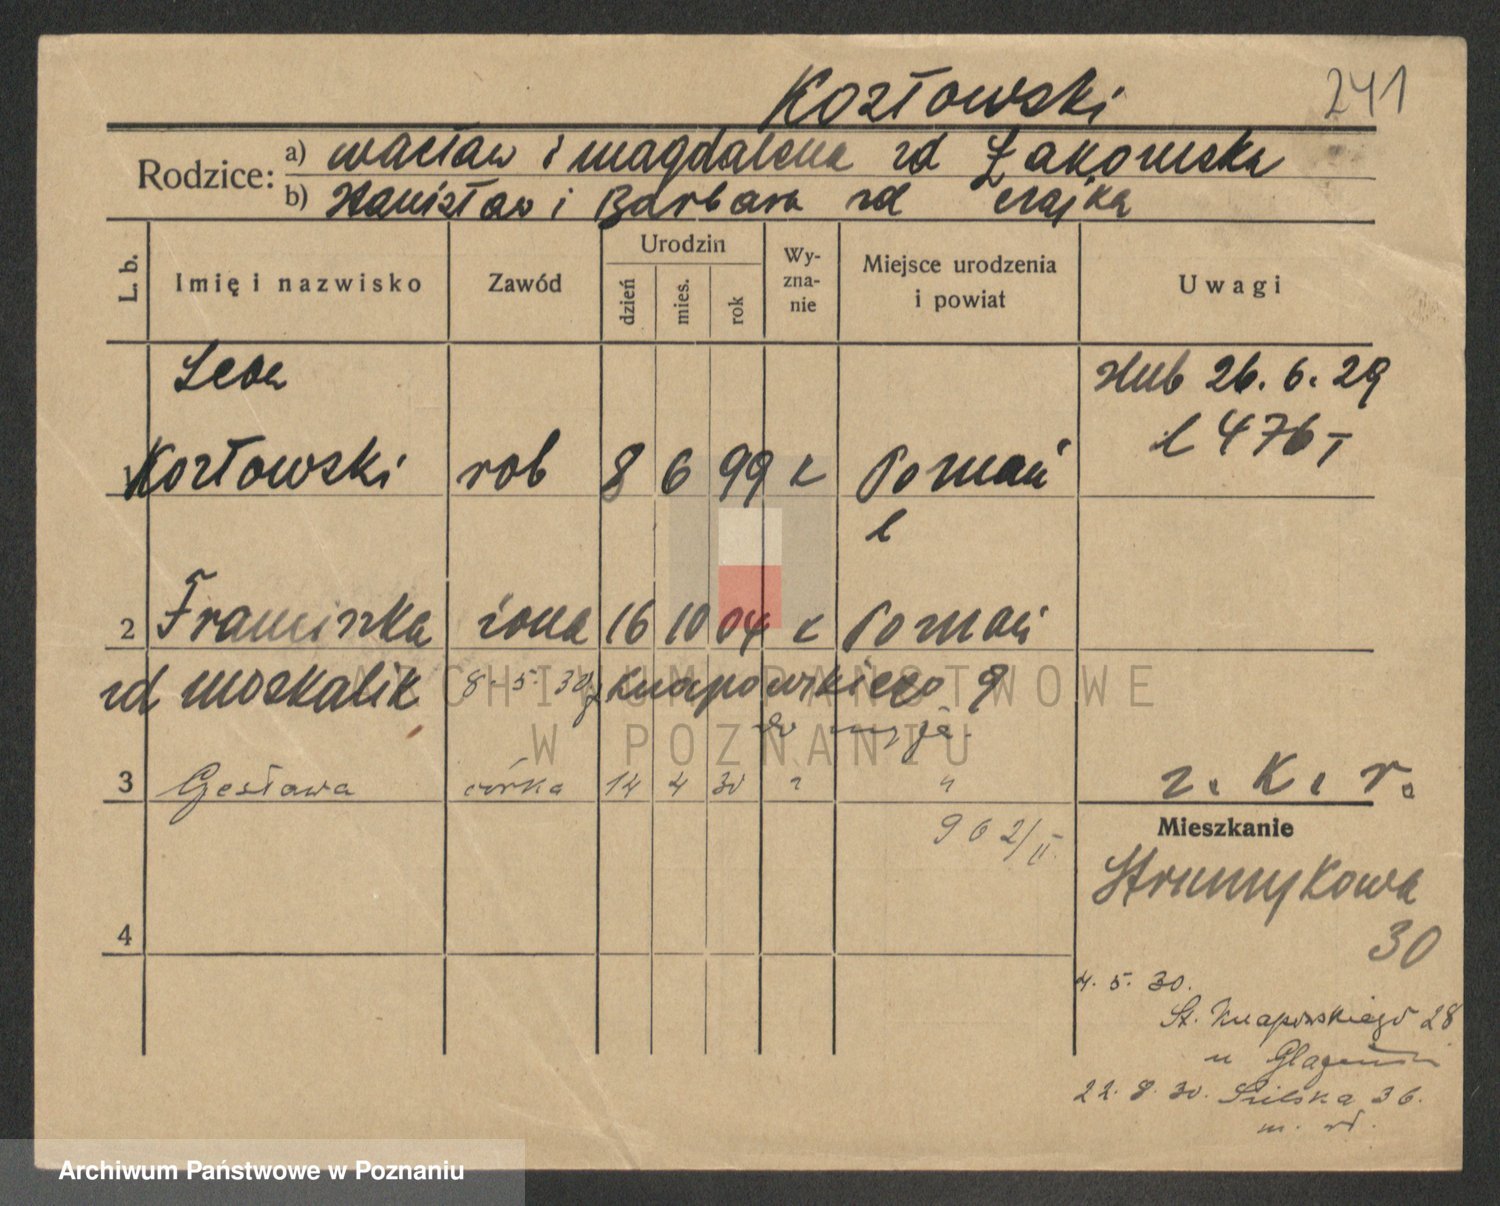 Kozłowski
241
Rodzice:
a) Wacław i Magdalena zd Żakowska
b) Stanisław i Barbara zd Czajka
L. b.
Imię i nazwisko
Zawód
Urodzin
dzień
mies.
rok
Wy-
zna-
nie
Miejsce urodzenia
i powiat
Uwagi
Leon
ślub 26. 6. 29
l 476
1 Kozłowski rob 8 6 99 k Poznań
2 Franciszka żona 16 10 04 k Poznań
zd Moskalik 8. 5. 30 Knapowskiego 9
3 Czesława córka 14 4 30 " "
z. k. r.
962/II.
Mieszkanie
Strumykowa
30
4
4. 5. 30.
St. Knapowskiego 28
u
22. 8. 30. 36.
ARCHIWUM PAŃSTWOWE
W POZNANIU
Archiwum Państwowe w Poznaniu